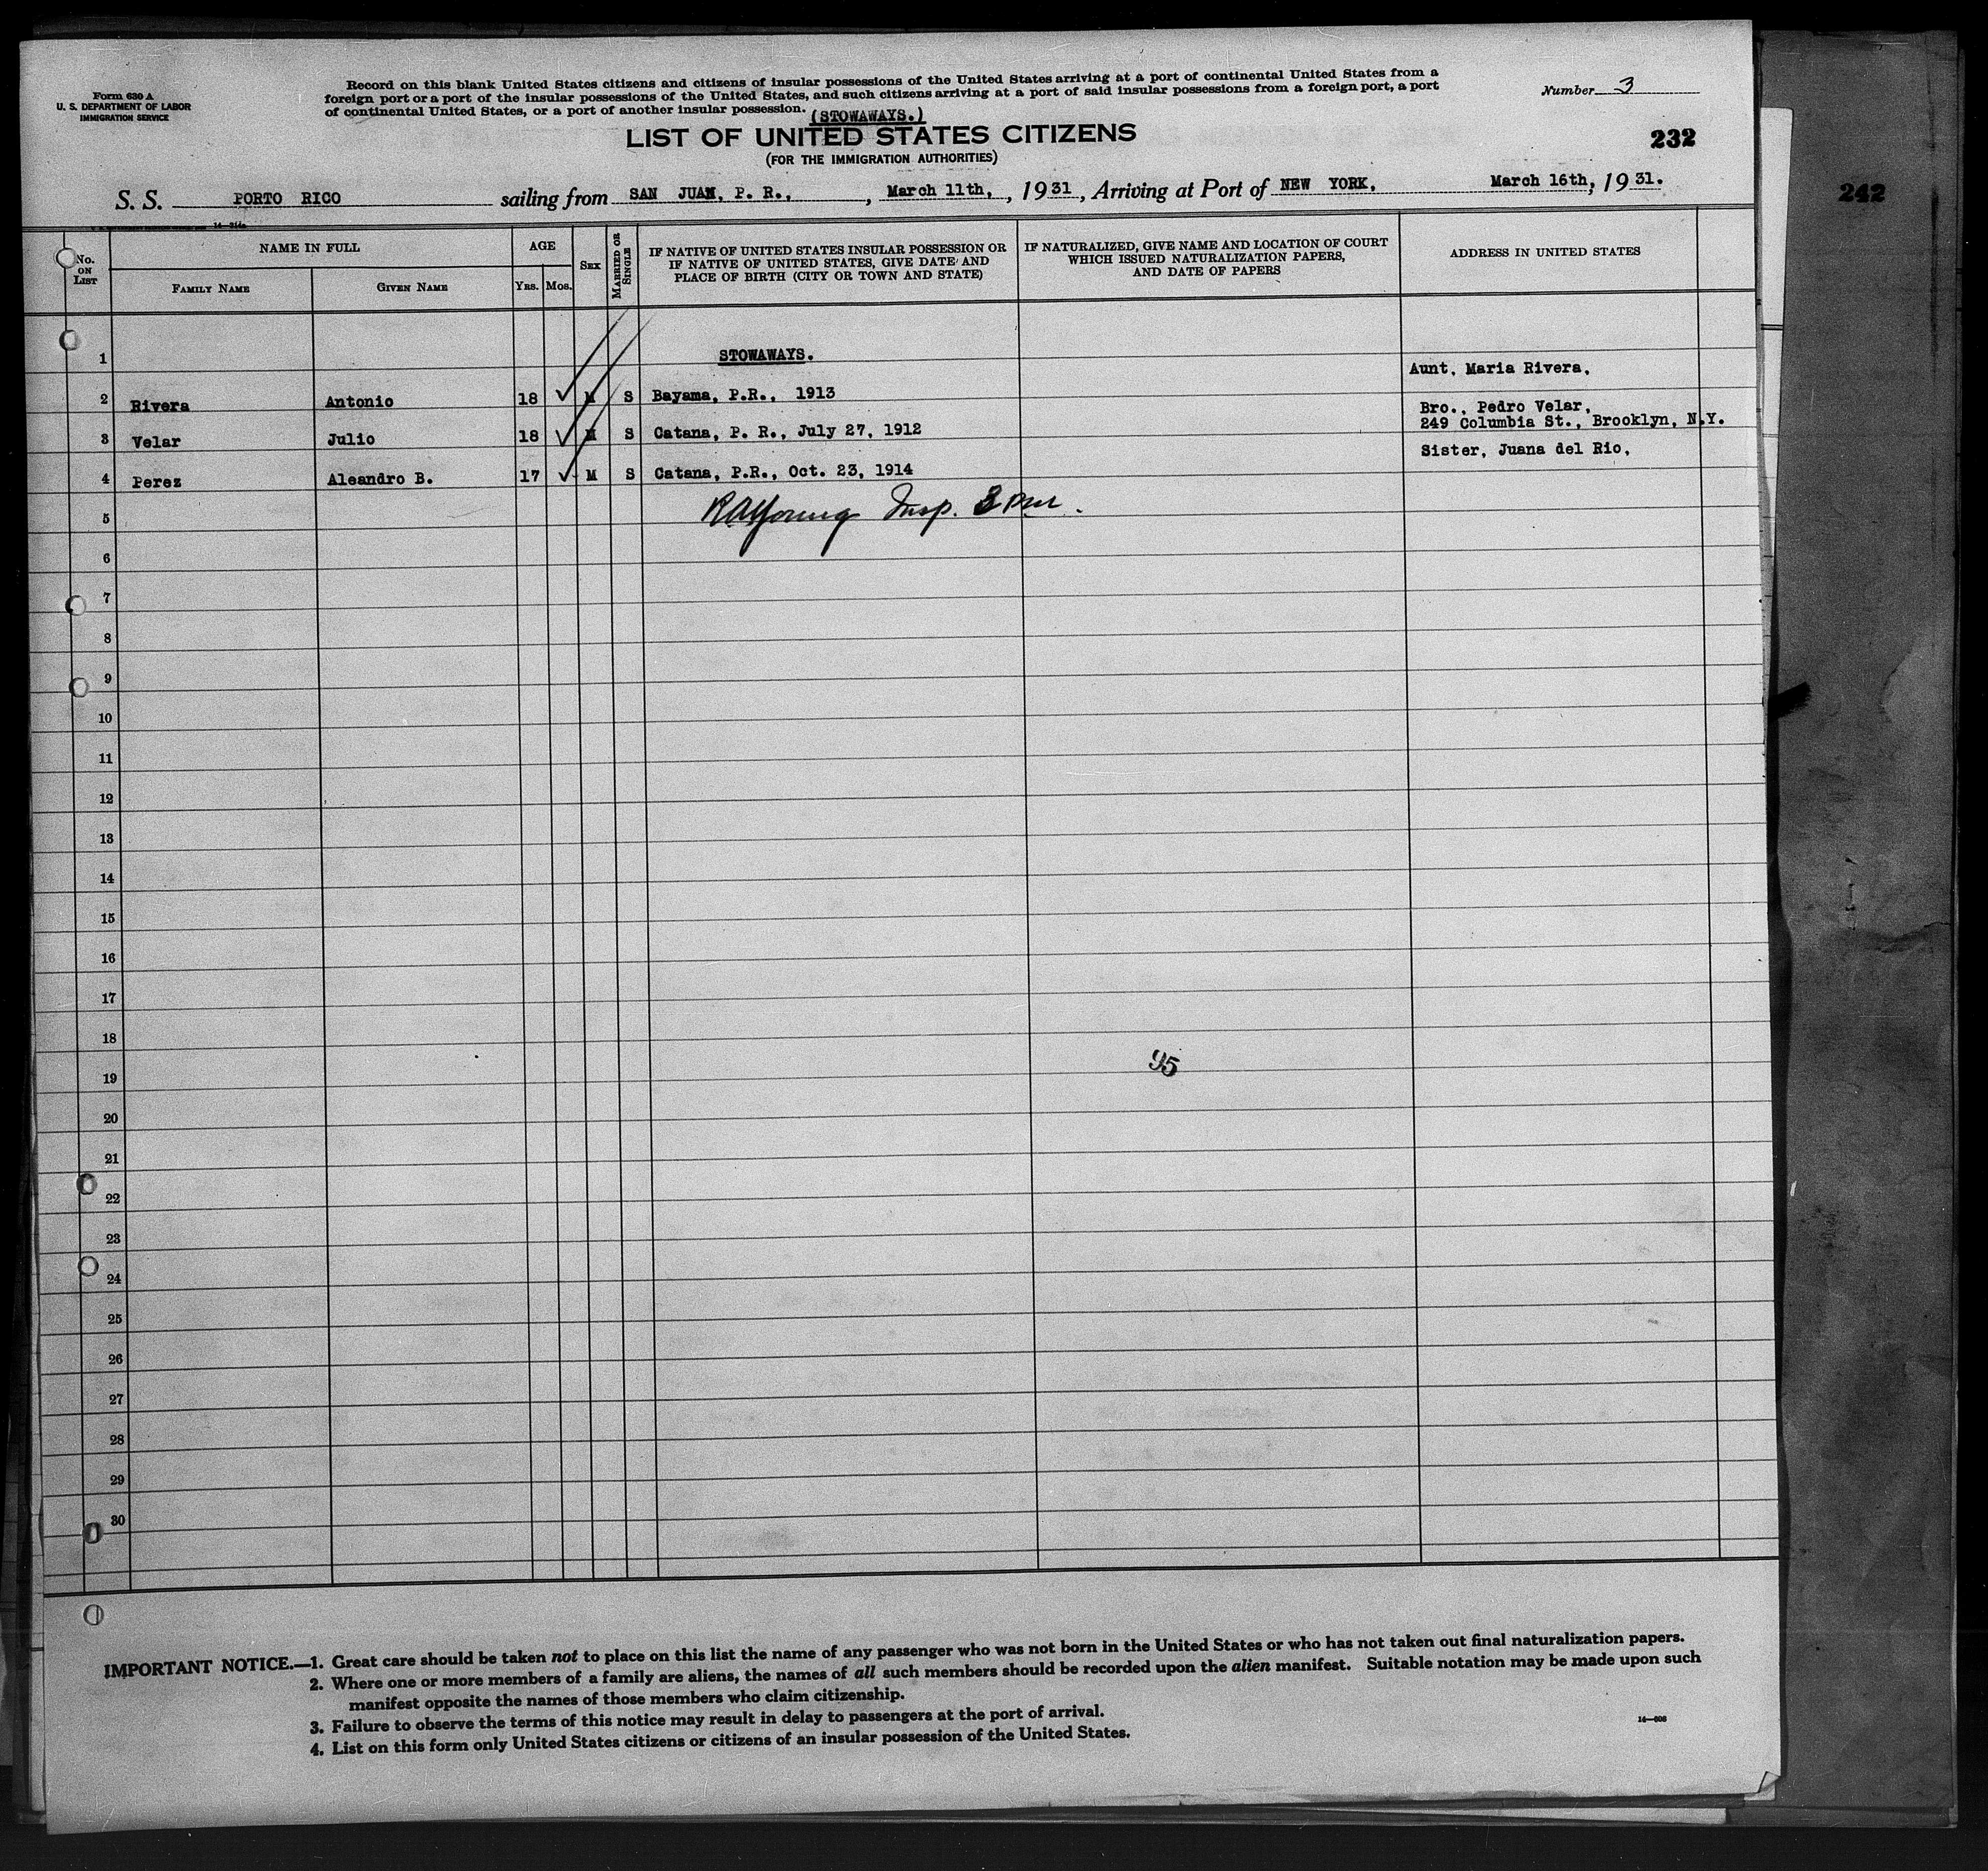 Form 630 A
U. S. DEPARTMENT OF LABOR
IMMIGRATION SERVICE
Record on this blank United States citizens and citizens of insular possessions of the United States arriving at a port of continental United States from a
foreign port or a port of the insular possessions of the United States, and such citizens arriving at a port of said insular possessions from a foreign port, a port
of continental United States, or a port of another insular possession.
Number 3
(STOWAWAYS.)
LIST OF UNITED STATES CITIZENS
(FOR THE IMMIGRATION AUTHORITIES)
232
242
S. S. PORTO RICO sailing from SAN JUAN, P. R., , March 11th, , 1931, Arriving at Port of NEW YORK, March 16th, 1931.
No. ON LIST
NAME IN FULL
FAMILY NAME
GIVEN NAME
AGE
YRS. MOS.
SEX
MARRIED OR SINGLE
IF NATIVE OF UNITED STATES INSULAR POSSESSION OR
IF NATIVE OF UNITED STATES, GIVE DATE AND
PLACE OF BIRTH (CITY OR TOWN AND STATE)
IF NATURALIZED, GIVE NAME AND LOCATION OF COURT
WHICH ISSUED NATURALIZATION PAPERS,
AND DATE OF PAPERS
ADDRESS IN UNITED STATES
1 STOWAWAYS.
Aunt, Maria Rivera,
2 Rivera Antonio 18 M S Bayama, P.R., 1913
Bro., Pedro Velar,
249 Columbia St., Brooklyn, N.Y.
3 Velar Julio 18 M S Catana, P. R., July 27, 1912
Sister, Juana del Rio,
4 Perez Aleandro B. 17 M S Catana, P.R., Oct. 23, 1914
5 RAYoung Insp. 3 PM.
6
7
8
9
10
11
12
13
14
15
16
17
18
95
19
20
21
22
23
24
25
26
27
28
29
30
IMPORTANT NOTICE.—1. Great care should be taken not to place on this list the name of any passenger who was not born in the United States or who has not taken out final naturalization papers.
2. Where one or more members of a family are aliens, the names of all such members should be recorded upon the alien manifest. Suitable notation may be made upon such
manifest opposite the names of those members who claim citizenship.
3. Failure to observe the terms of this notice may result in delay to passengers at the port of arrival.
4. List on this form only United States citizens or citizens of an insular possession of the United States.